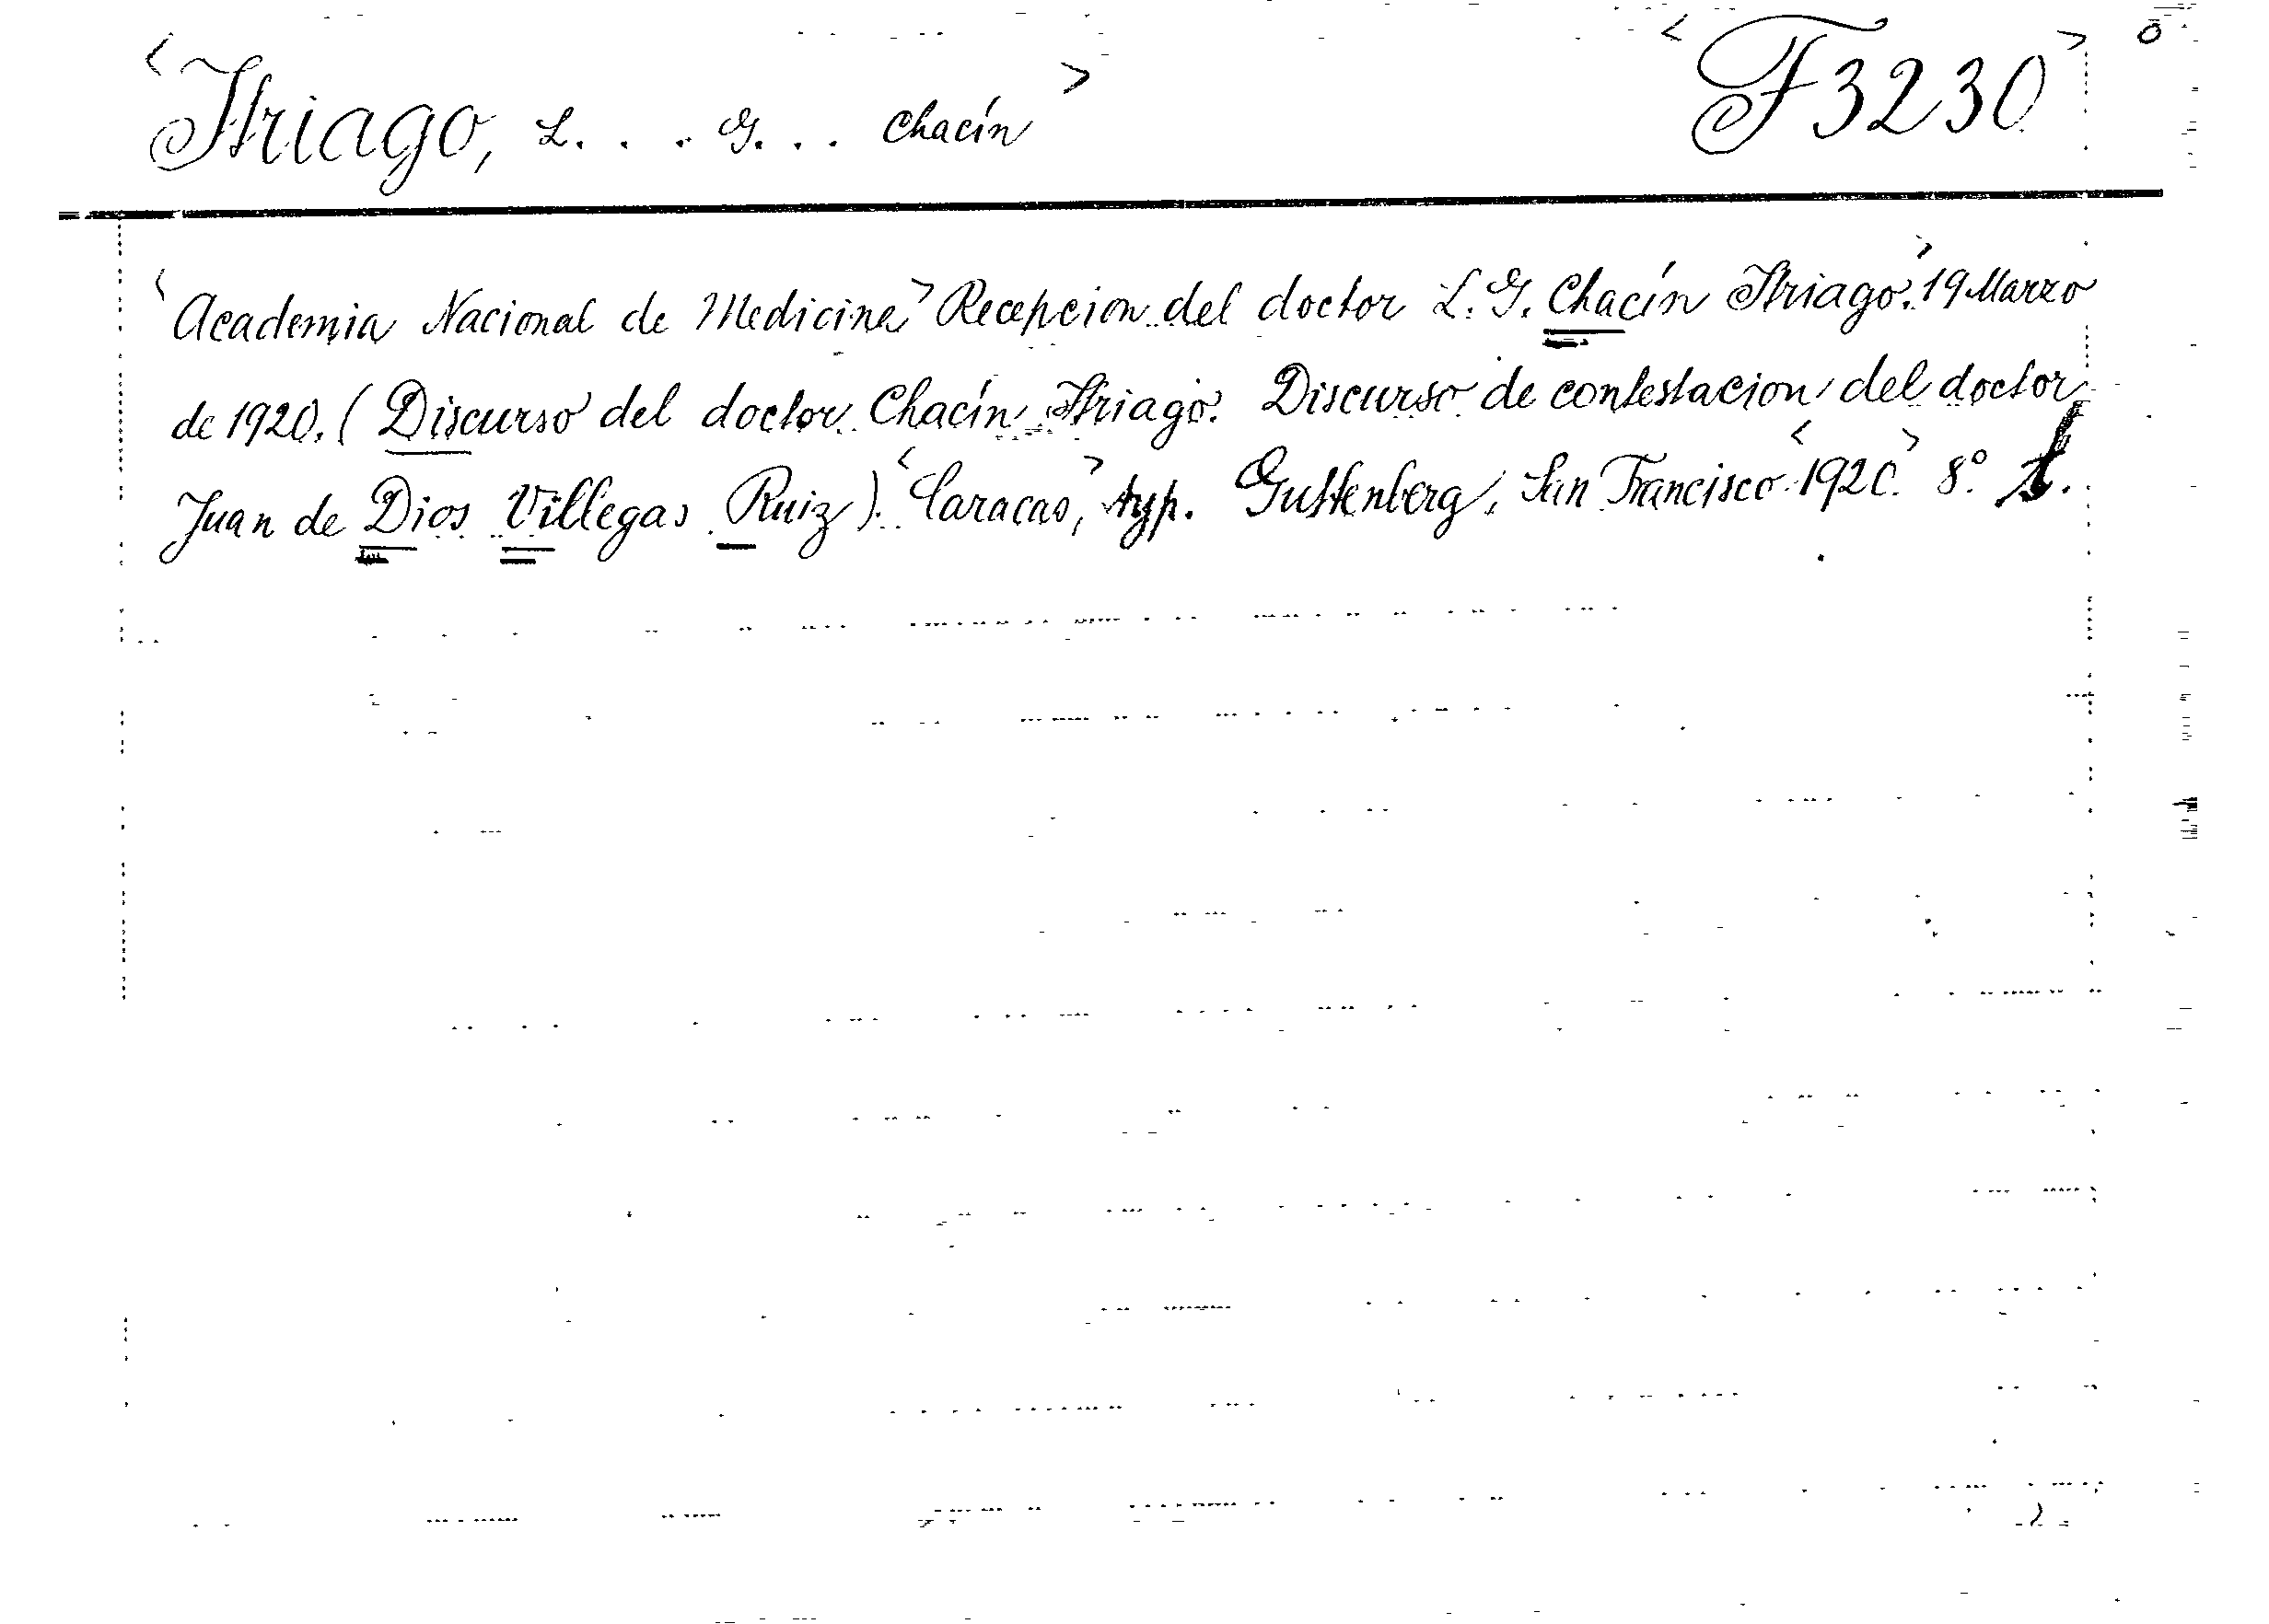 <Itriago, L. . . . G. . . Chacín> <F3230>
<Academia Nacional de Medicina> Recepcion del doctor L. G. Chacín Itriago.> 19 Marzo
de 1920. (Discurso del doctor Chacín Itriago. Discurso de contestacion del doctor
Juan de Dios Villegas Ruiz). <Caracas,> typ. Guttenberg, San Francisco <1920.> 8°.